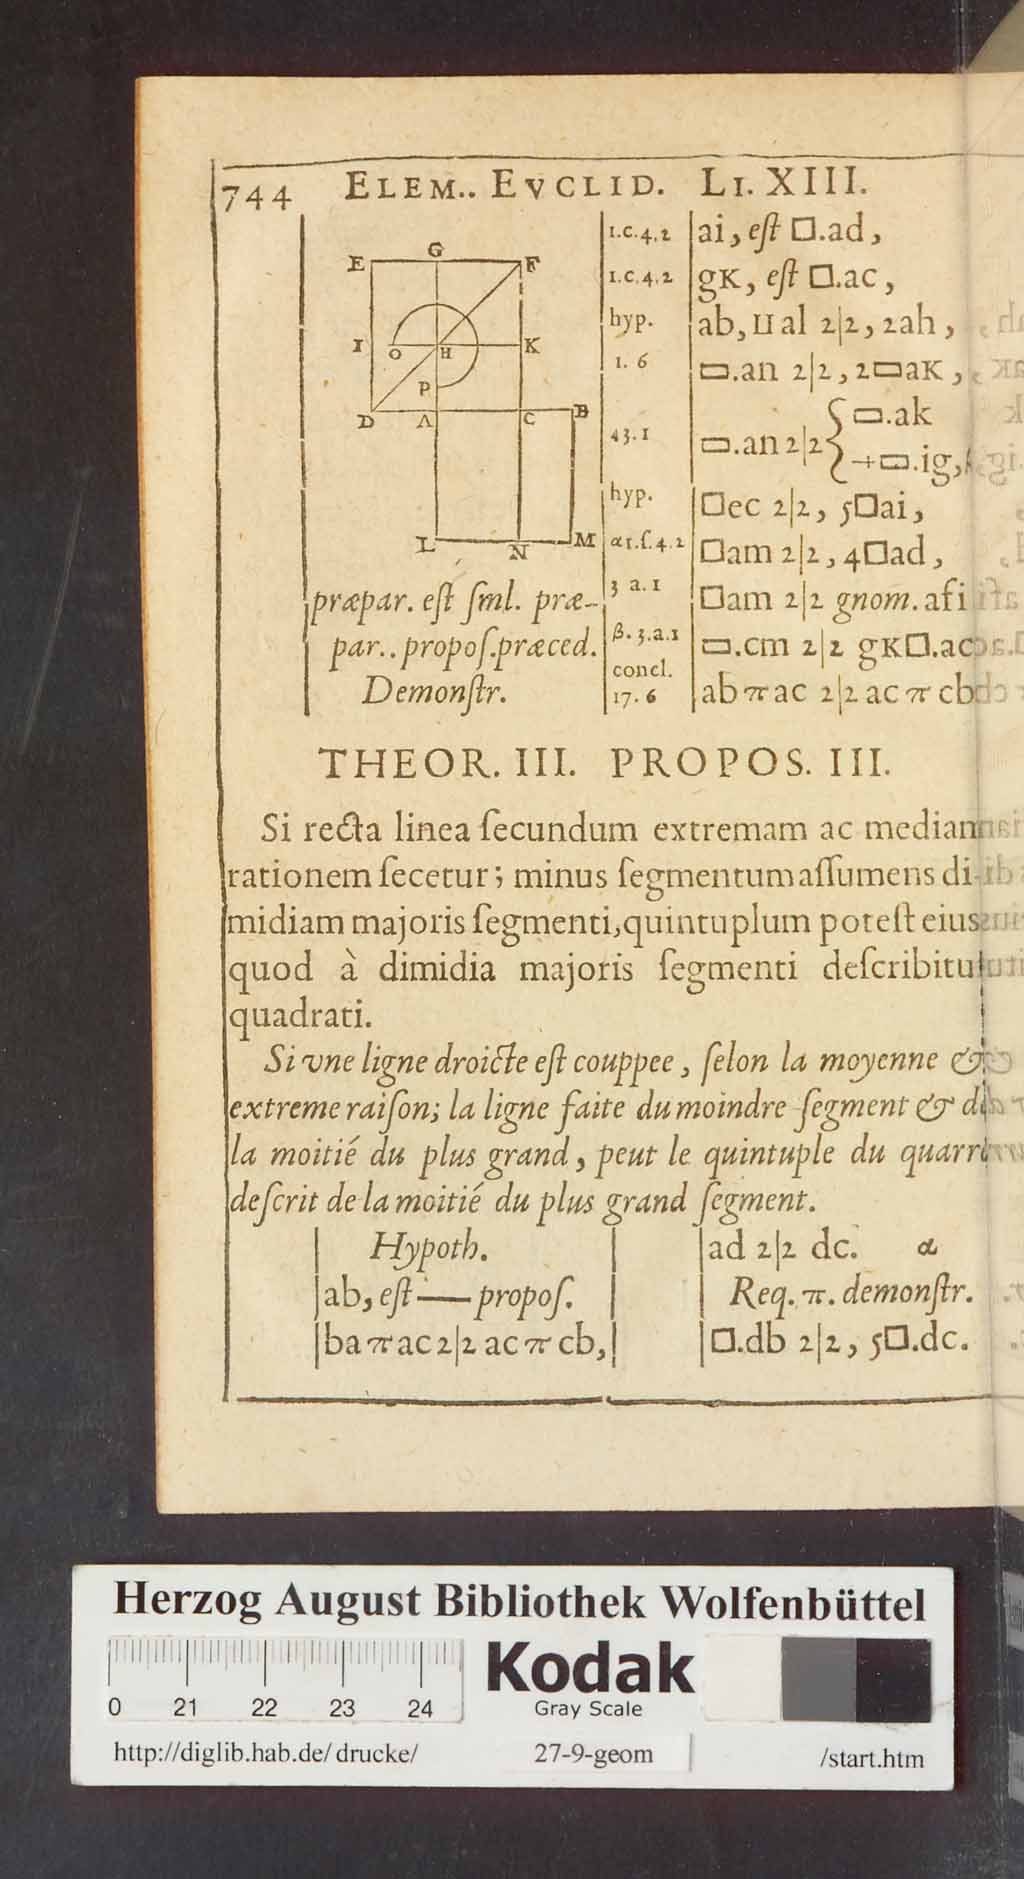 744 ELEM.. EVCLID. LI. XIII.
G
E F
I O H K
P
D A C B
L N M
præpar. eſt ſml. præ-
par.. propoſ. præced.
Demonſtr.
1.c.4.2 ai, eſt □.ad,
1.c.4.2 gK, eſt □.ac,
hyp. ab, Π al 2|2, 2ah,
1. 6 ▭.an 2|2, 2▭aK,
43.1 ▭.an 2|2 { ▭.ak
+▭.ig,
hyp. □ec 2|2, 5□ai,
α1.ſ.4.2 □am 2|2, 4□ad,
3 a.1 □am 2|2 gnom. afi
β.3.a.1 ▭.cm 2|2 gK□.ac
concl.
17.6 ab π ac 2|2 ac π cb
THEOR. III. PROPOS. III.
Si recta linea ſecundum extremam ac mediam
rationem ſecetur; minus ſegmentum aſſumens di-
midiam majoris ſegmenti, quintuplum poteſt eius
quod à dimidia majoris ſegmenti deſcribitu
quadrati.
Si vne ligne droicte eſt couppee, ſelon la moyenne &
extreme raiſon; la ligne faite du moindre ſegment & d
la moitié du plus grand, peut le quintuple du quarr
deſcrit de la moitié du plus grand ſegment.
Hypoth.
ab, eſt — propoſ.
ba π ac 2|2 ac π cb,
ad 2|2 dc. α
Req. π. demonſtr.
□.db 2|2, 5□.dc.
Herzog August Bibliothek Wolfenbüttel
0 21 22 23 24
Kodak
Gray Scale
http://diglib.hab.de/drucke/ 27-9-geom /start.htm